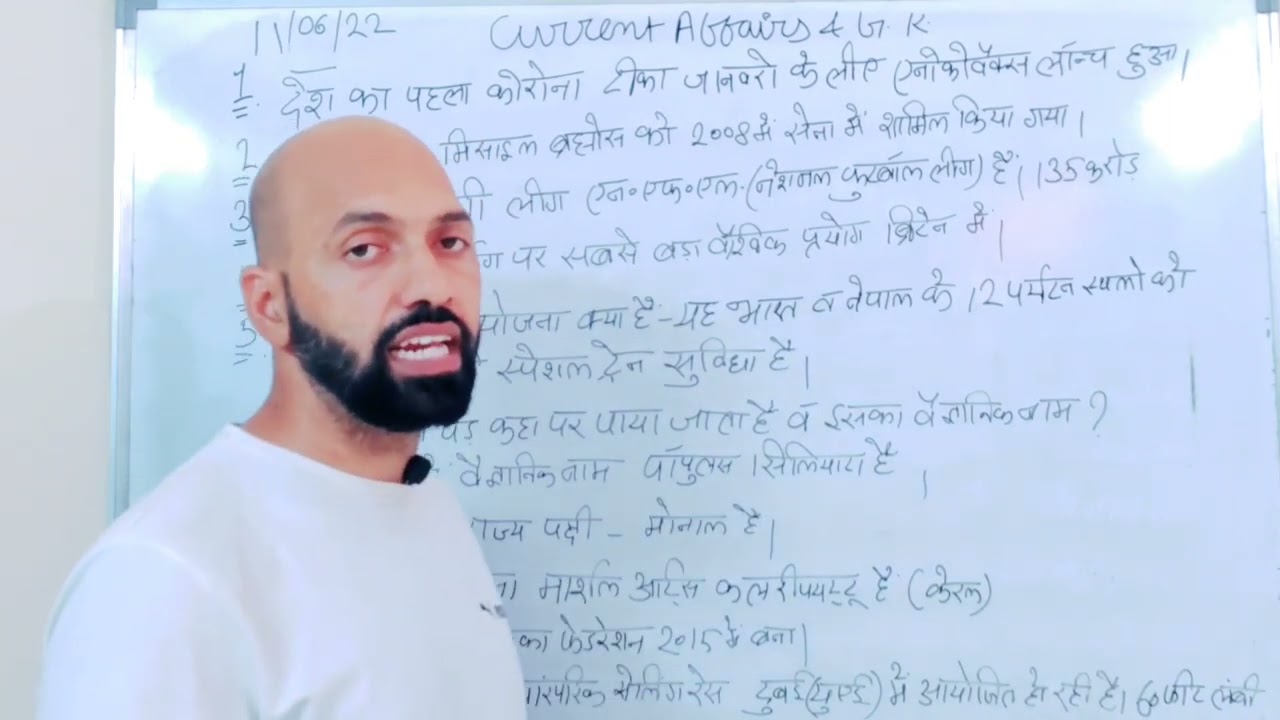 11/06/22 Current Affairs & G.K.
1. देश का पहला कोरोना टीका जानवरो के लीए एनोकोवैक्स लॉन्च हुआ।
2 मिसाइल ब्रह्मोस को 2008 में सेना में शामिल किया गया।
3 लीग एन॰एफ॰एल॰ (नेशनल फुटबॉल लीग) है। 135 करोड़
पर सबसे बड़ा वैश्विक प्रयोग ब्रिटेन में।
5 योजना क्या है - यह भारत व नेपाल के 12 पर्यटन स्थलो की
स्पेशल ट्रेन सुविधा है।
कहा पर पाया जाता है व इसका वैज्ञानिक नाम ?
वैज्ञानिक नाम पॉपुलस सिलियाटा है।
राज्य पक्षी - मोनाल है।
मार्शल आर्ट्स कलरीपयट्टू है (केरल)
का फेडरेशन 2015 में बना।
पारंपरिक सेलिंग रेस दुबई (युएई) में आयोजित हो रही है। 60 फीट लंबी